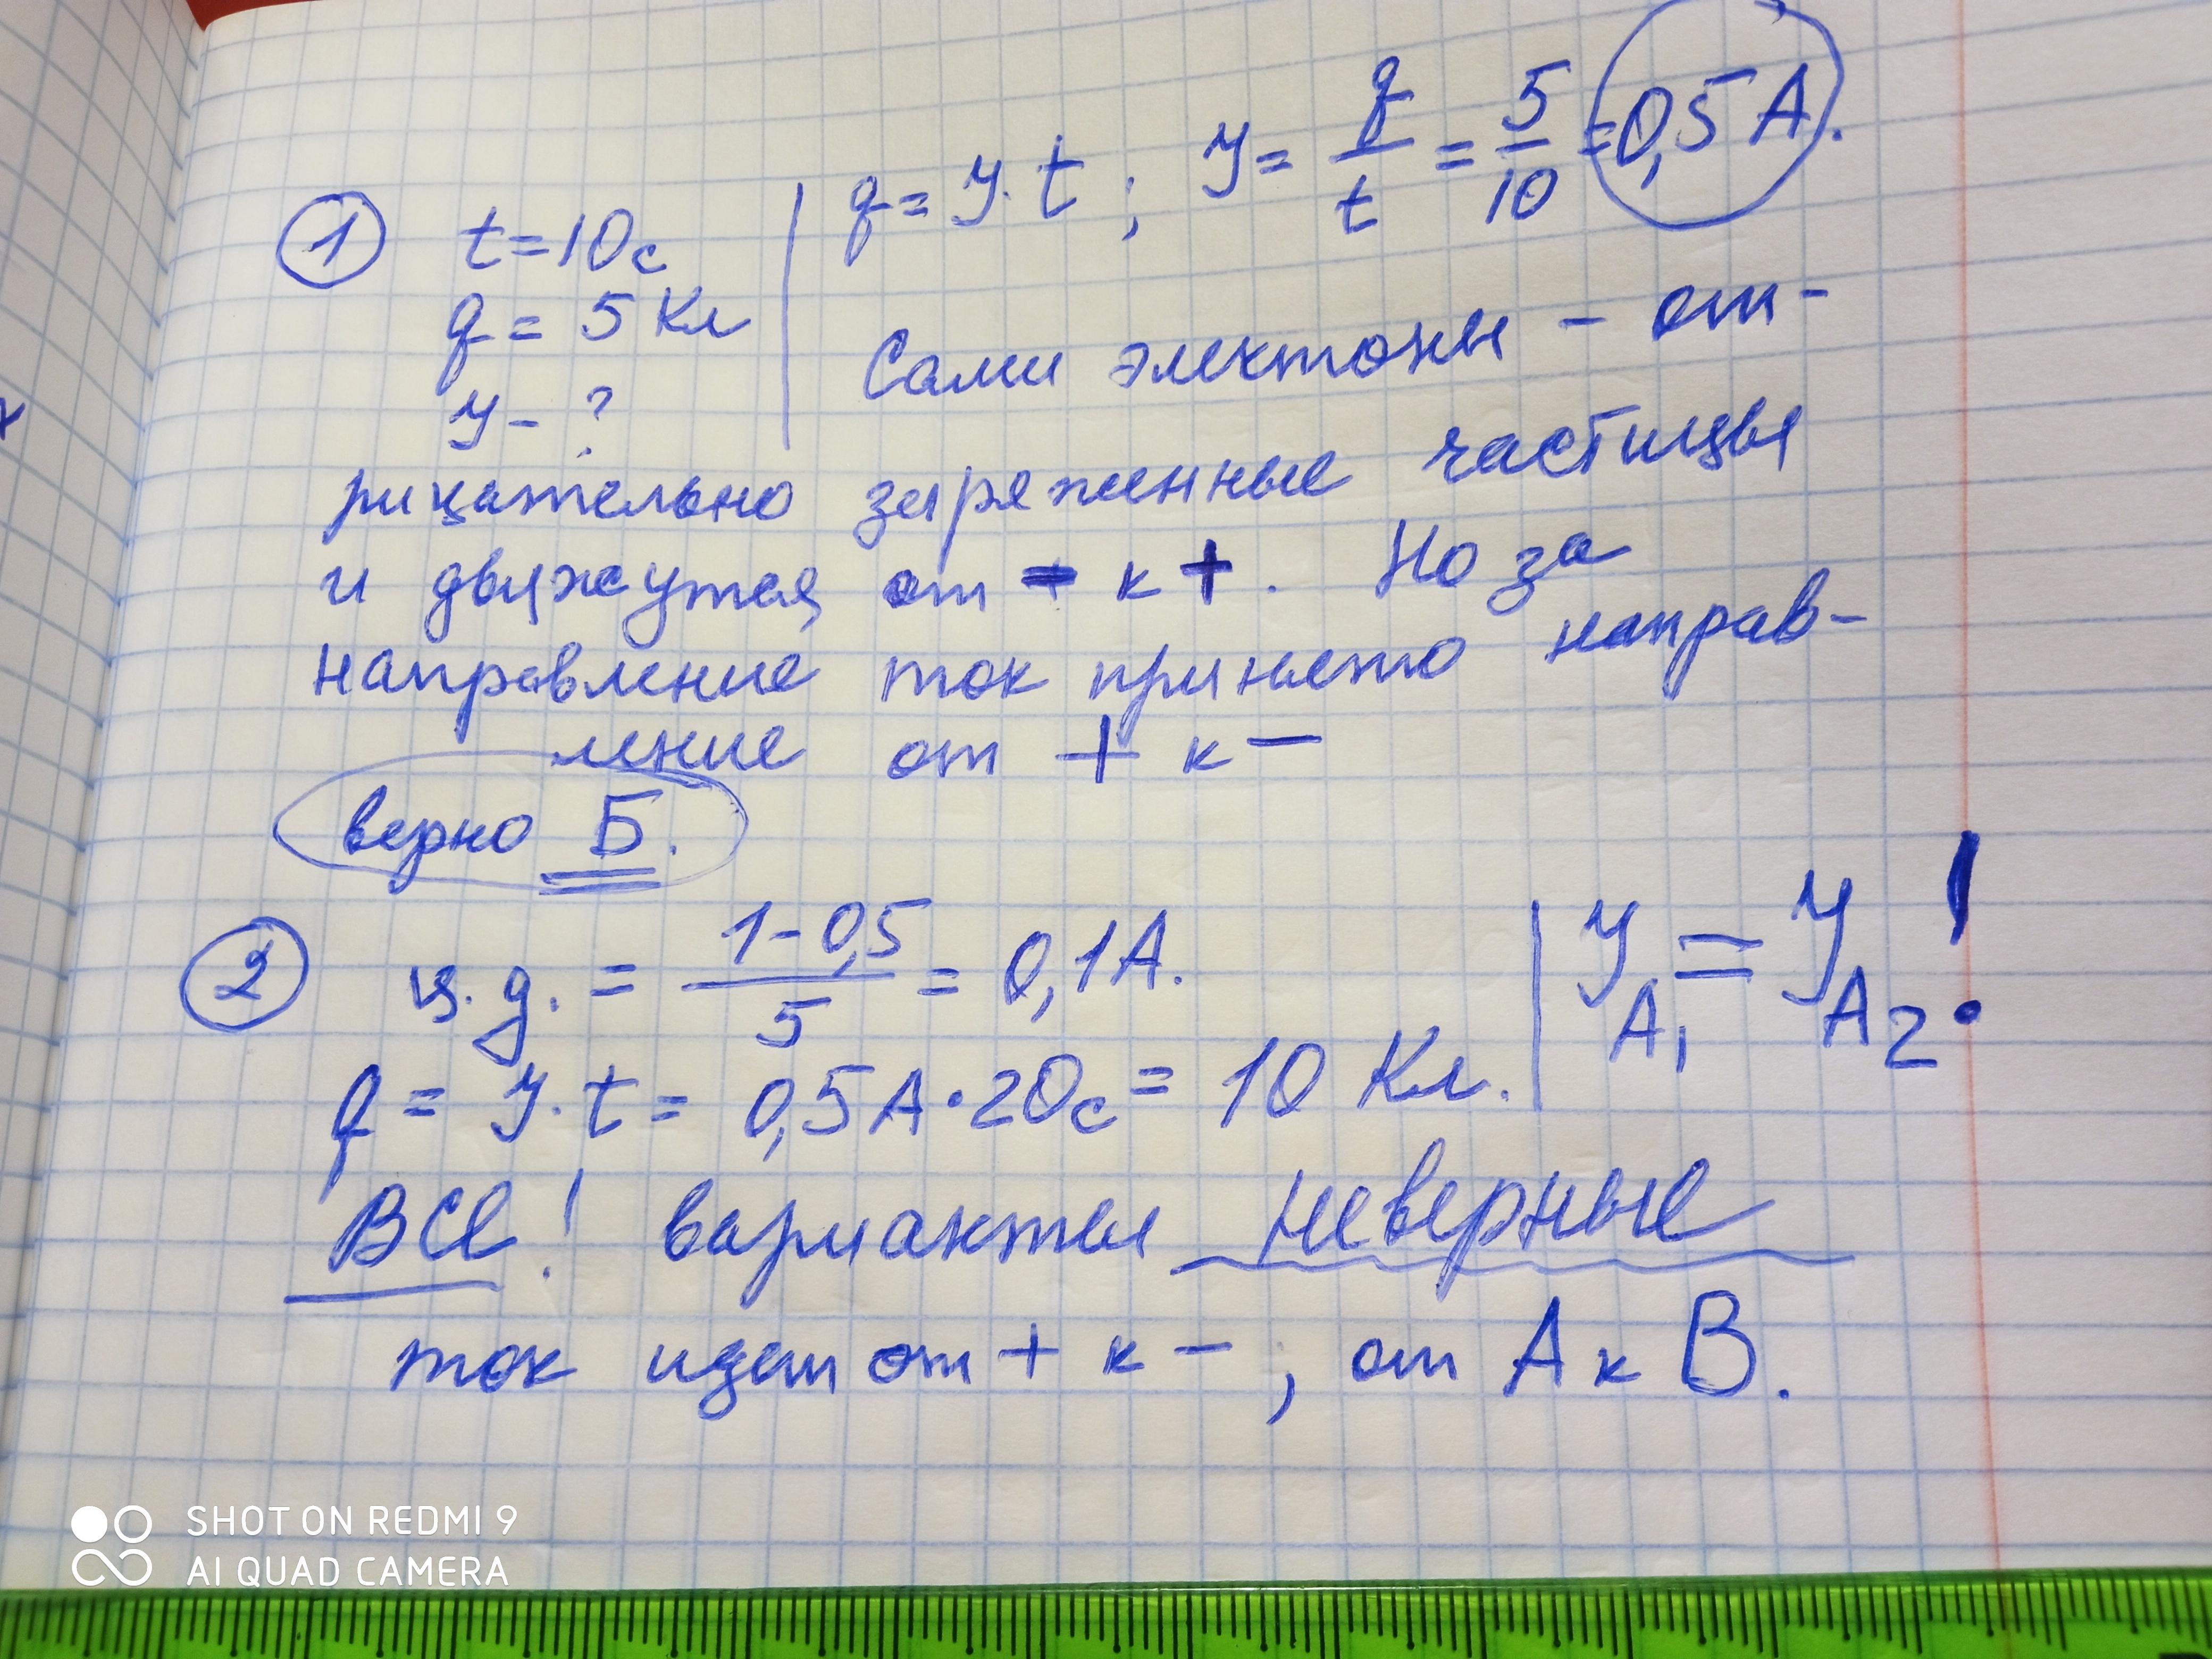 q = У·t ; У = q/t = 5/10 = 0,5 А.
1 t = 10с
q = 5 Кл
У - ?
Сами электоны - от-
рицательно заряженные частицы
и движутся от - к +. Но за
направление ток принято направ-
ление от + к -
верно Б.
2 ц.д. = 1-0,5/5 = 0,1А. У А1 = У А2 !
q = У·t = 0,5А·20с = 10 Кл.
ВСе! варианты неверные
ток идет от + к - , от А к В.
SHOT ON REDMI 9
AI QUAD CAMERA